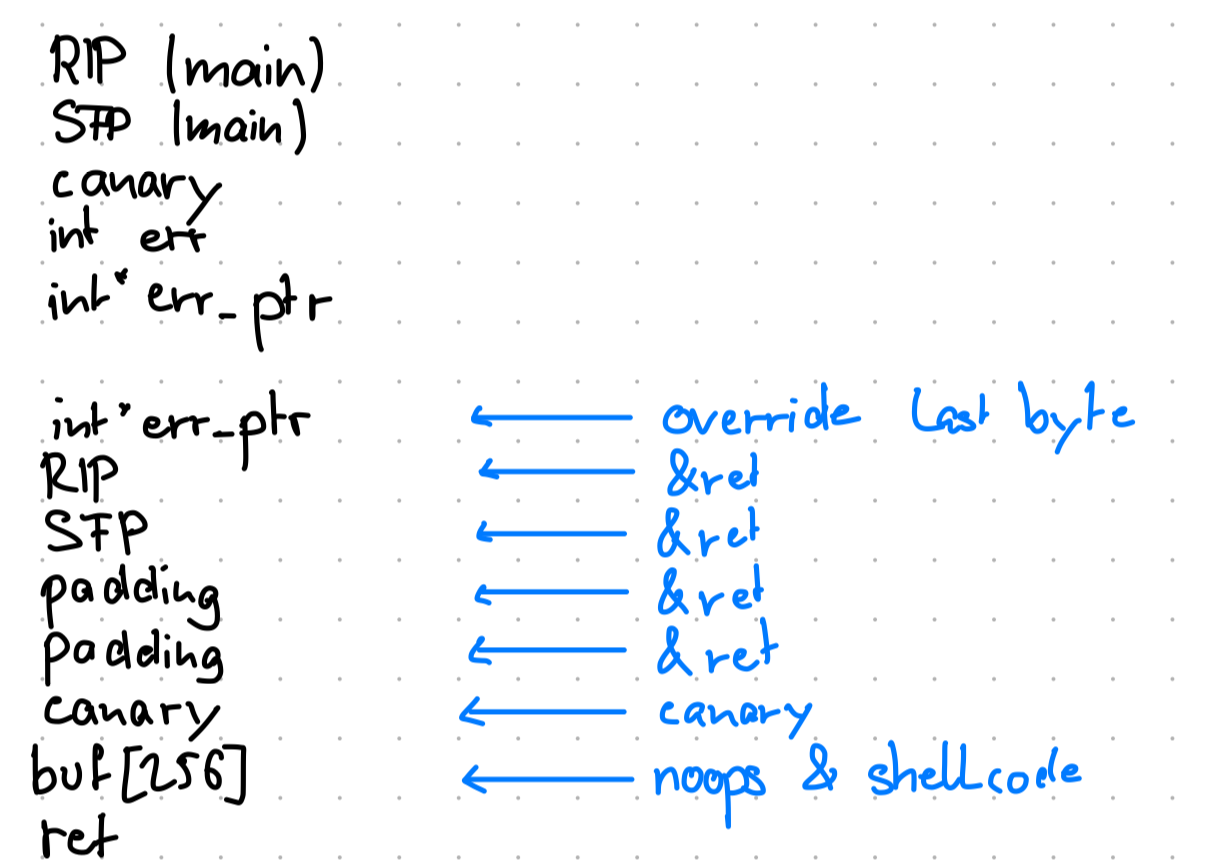 RIP (main)
SFP (main)
canary
int err
int* err_ptr
int* err_ptr ← override last byte
RIP ← &ret
SFP ← &ret
padding ← &ret
padding ← &ret
canary ← canary
buf[256] ← noops & shellcode
ret